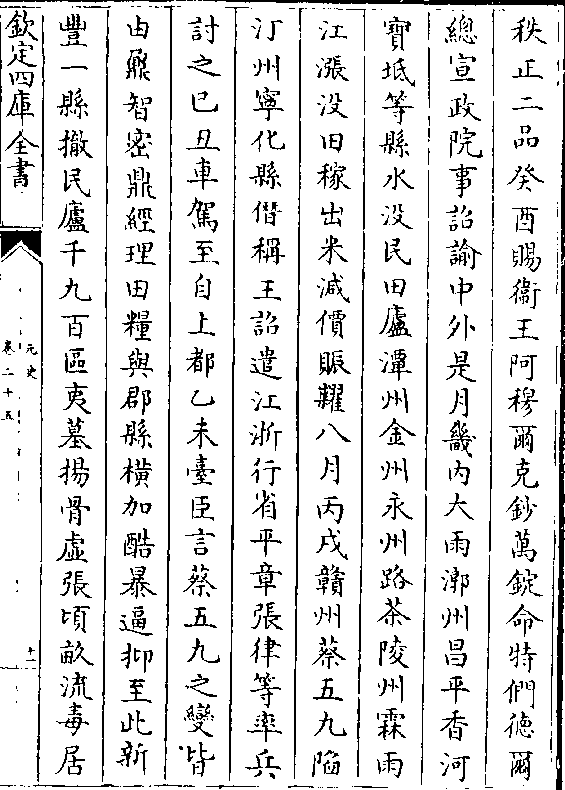 秩正二品癸酉賜衛王阿穆爾克鈔萬錠命特們德爾
總宣政院事詔諭中外是月畿内大雨漷州昌平香河
寶坻等縣水没民田廬潭州金州永州路茶陵州霖雨
江漲没田稼出米減價賑糶八月丙戌贛州蔡五九陷
汀州寧化縣僭稱王詔遣江浙行省平章張律等率兵
討之已丑車駕至自上都乙未臺臣言蔡五九之變皆
由鼐智密鼎經理田糧與郡縣橫加酷暴逼抑至此新
豐一縣撤民廬千九百區夷墓揚骨虚張頃畝流毒居
欽定四庫全書
元史
卷二十五
十二